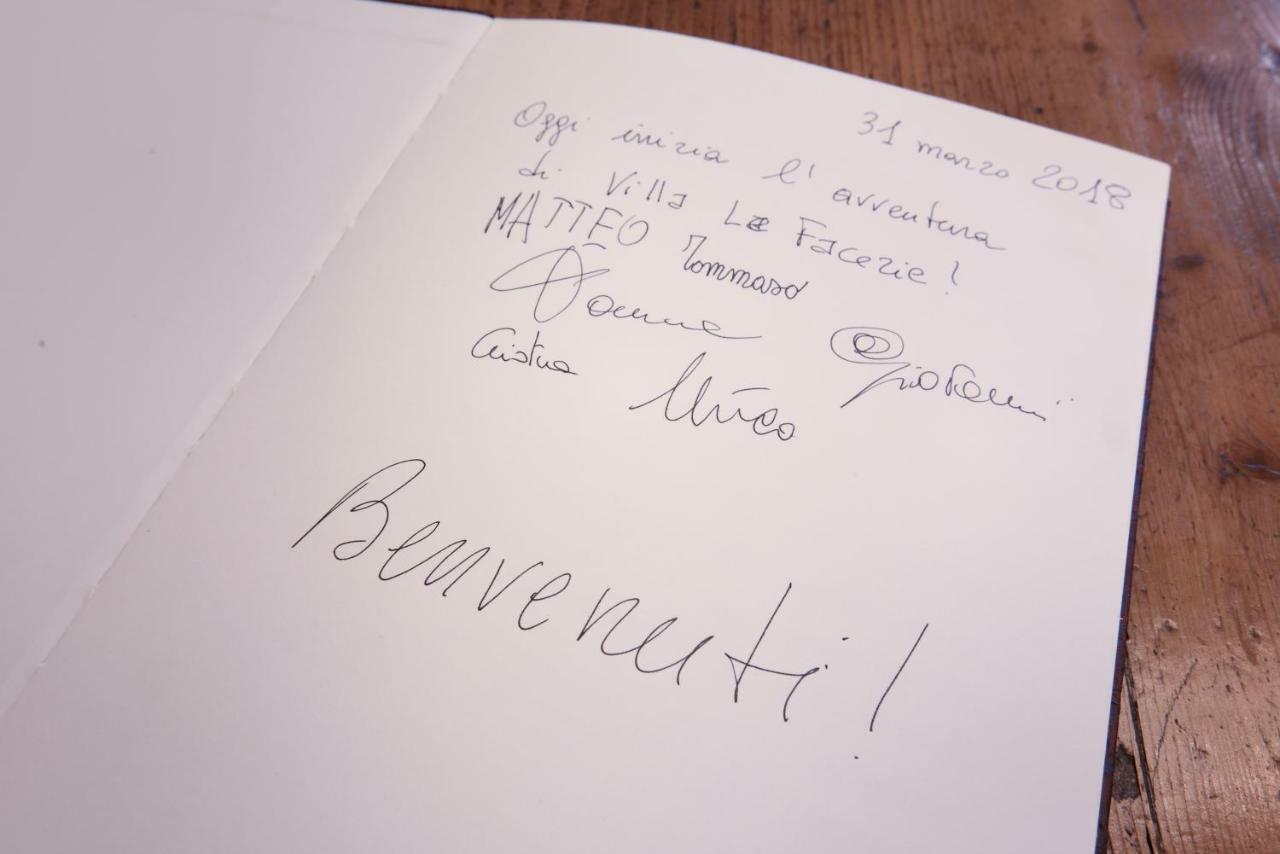 31 marzo 2018
Oggi inizia l'avventura
di Villa Le Facezie!
MATTEO Tommaso
Giovanni
Cristina
Benvenuti!